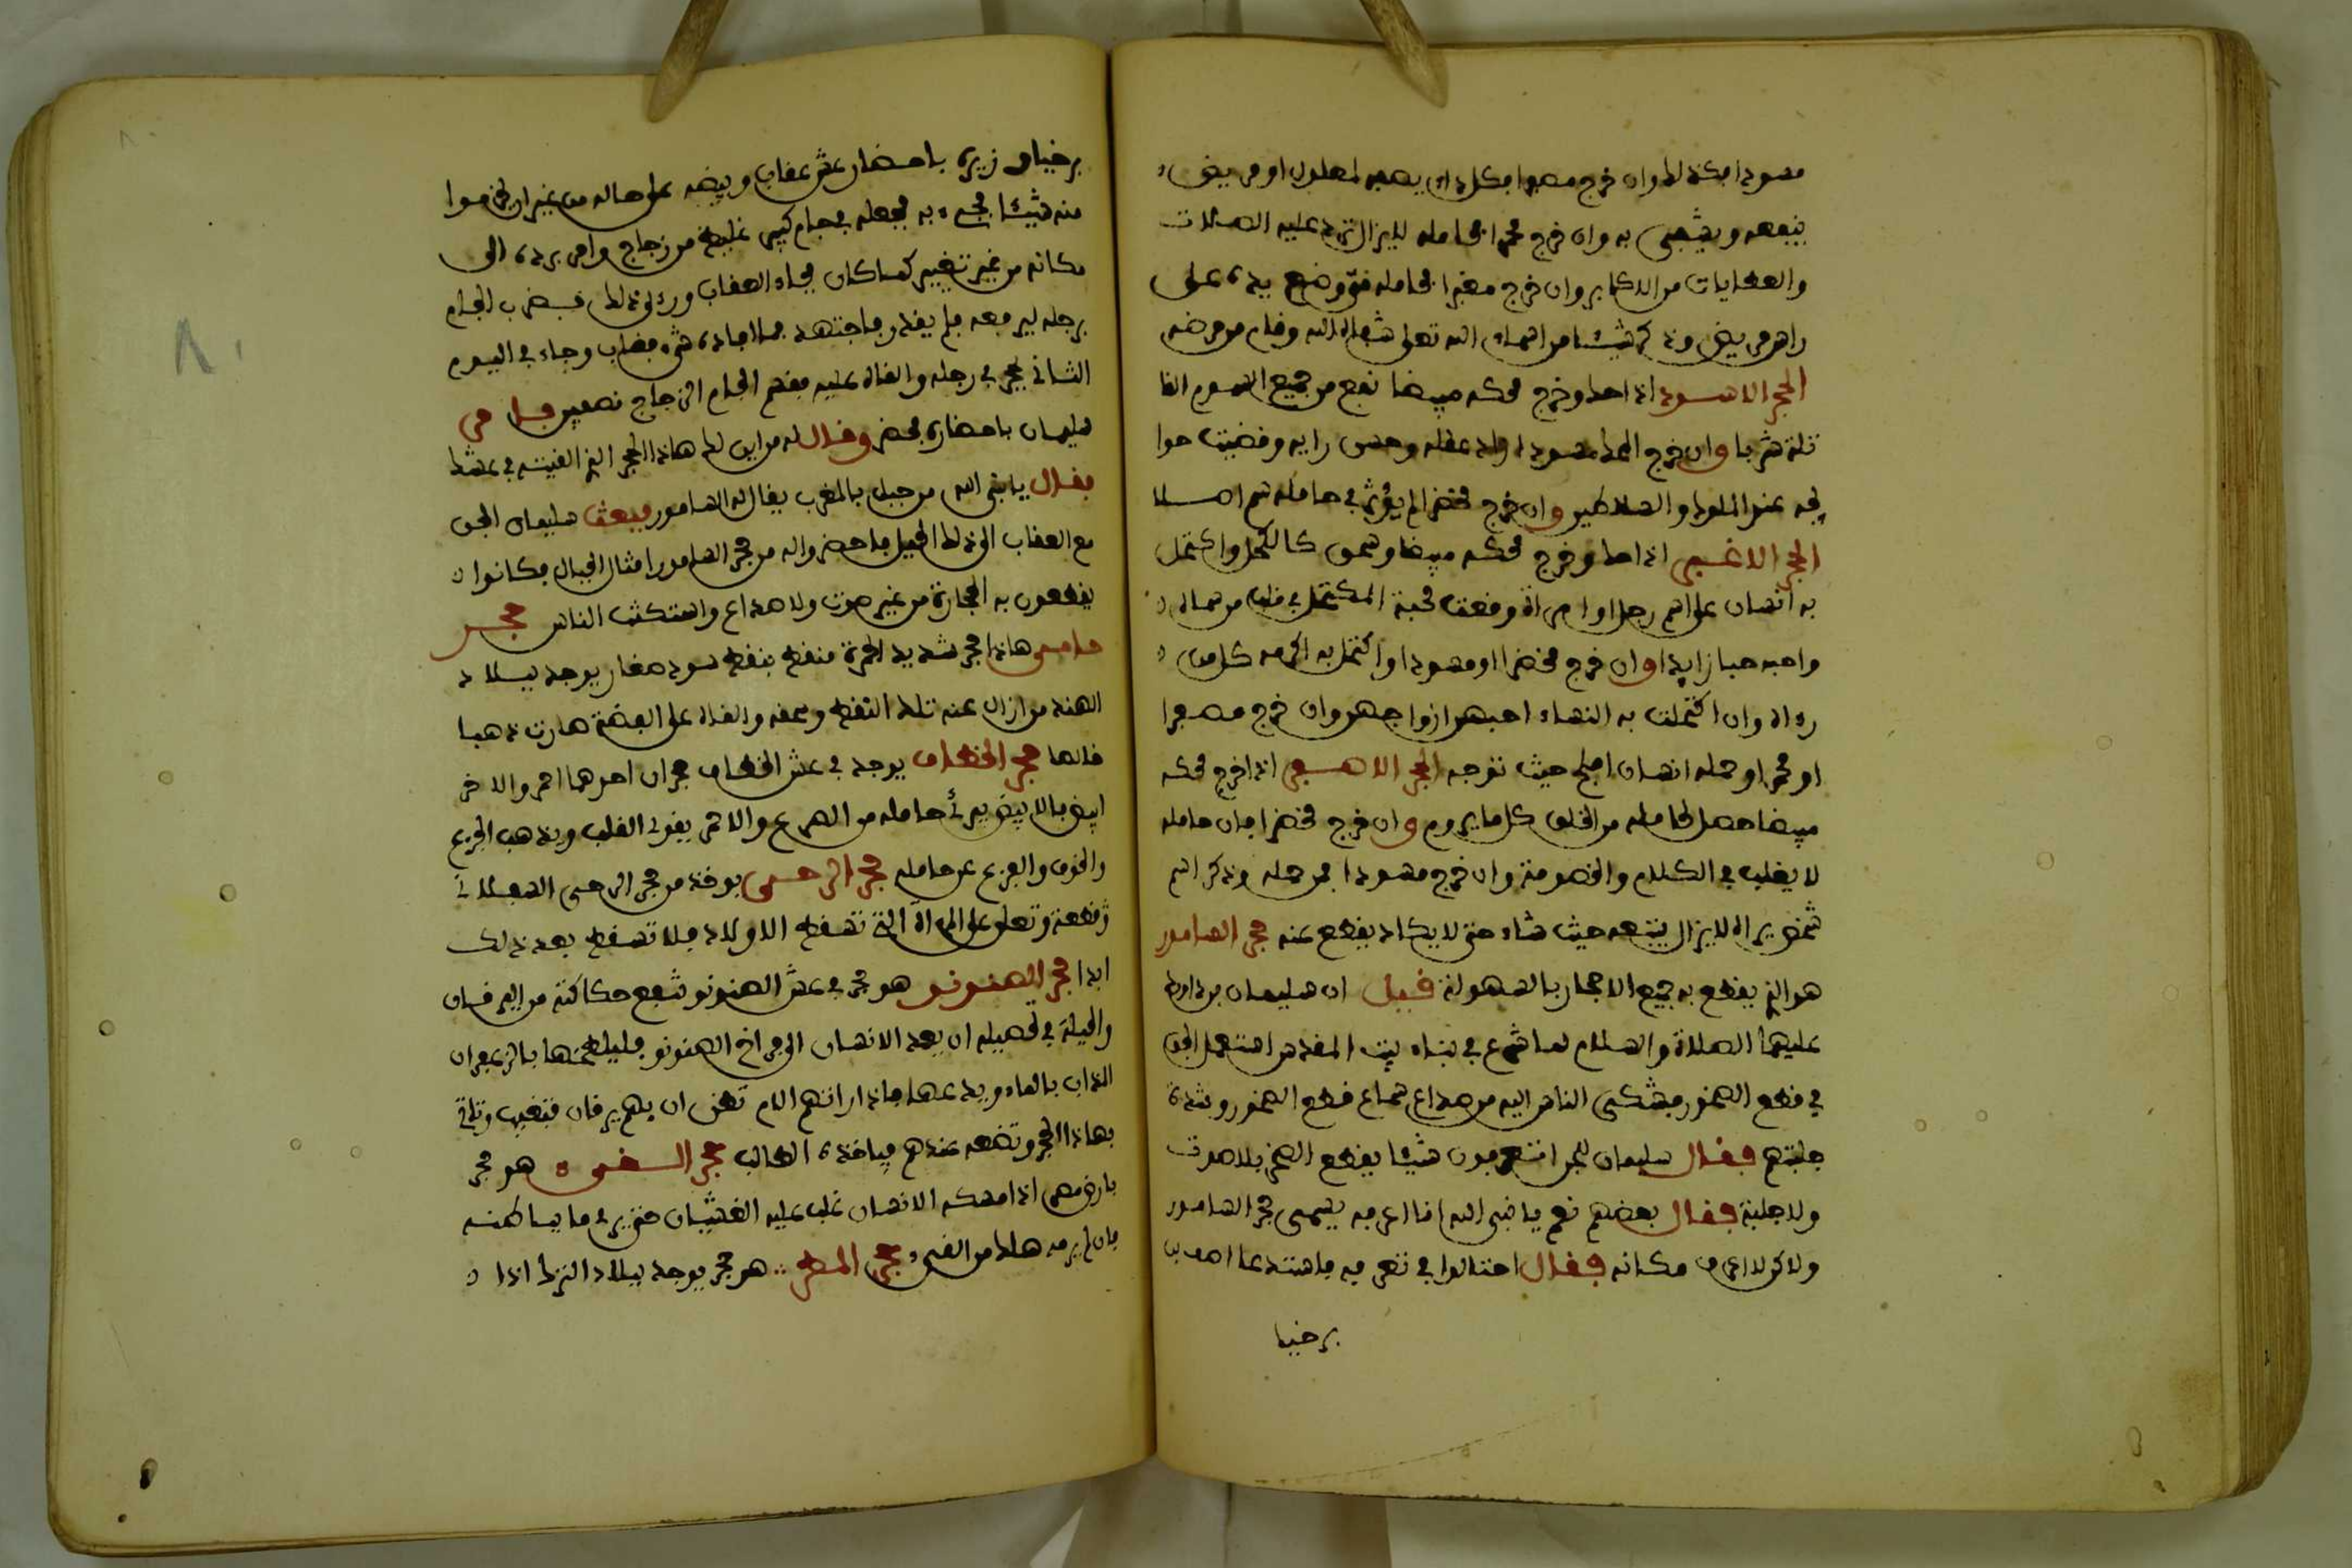 مسودا فكذلك وان خرج مصفرا فكل دا يصيب لمعلول او مريض
ينفعه ويشفى به وان خرج محمرا فحامله لا يزال ترد عليه الصلات
والعطايات من الاكابر وان خرج مغبرا فحامله متى وضع يده على
راس مريض وذكر شيئا من اسماء الله تعلى شفاه الله وقام من مرضه
الحجر الاسود اذا حك وخرج محكه مبيضا نفع من جميع السموم القا
تلة شربا وان خرج المحك مسودا زاد عقله وحسن رايه وقضيت حوا
يجه عند الملوك والسلاطين وان خرج مخضرا لم يؤثر في حامله سم اصلا
الحجر الاغبر اذا حك وخرج محكه مبيضا وسحق كالكحل واكتحل
به انسان على اسم رجل او امراة وقعت محبة المكتحل في قلب من سماه
واحبه حبا زايدا وان خرج مخضرا او مسودا واكتحل به اكرمه كل من
رءاه وان اكتحلت به النساء احبهن ازواجهن وان خرج مصفرا
او محمرا وحمله انسان افلح حيث توجه الحجر الاصفر اذا خرج محكه
مبيضا حصل لحامله من الخلق كل ما يروم وان خرج مخضرا فان حامله
لا يغلب في الكلام والخصومة وان خرج مسودا فمن حمله وذكر اسم
شخص يراه لا يزال يتبعه حيث شاء حتى لا يكاد يقطع عنه حجر السامور
هو الذي يقطع به جميع الاحجار بالسهولة قيل ان سليمان بن داود
عليهما الصلاة والسلام لما شرع في بناء بيت المقدس استعمل الجن
في قطع الصخور فشكى الناس اليه من صداع سماع قطع الصخور وشدة
جلبتهم فقال سليمان للجن اتعرفون شيئا يقطع الصخر بلا صوت
ولا جلبة فقال بعضهم نعم يا نبي الله انا اعرفه يسمى حجر السامور
ولاكن لا اعرف مكانه فقال احتالوا في تعرفه فاستدعا اصف بن
برخيا
برخيا وزيره باحضار عش عقاب وبيضه على حاله من غير ان يخرموا
منه شيئا فجيء به فجعله في جام كبير غليظ من زجاج وامر برده الى
مكانه من غير تغيير كما كان فجاء العقاب ورءى ذلك فضرب الجام
برجله ليرفعه فلم يقدر فاجتهد فما افاده شيء فغاب وجاء في اليوم
الثاني بحجر في رجله والقاه عليه فقسم الجام الزجاج نصفين فامر
سليمان باحضاره فحضر وقال له من اين لك هاذا الحجر الذي القيته في عشك
فقال يا نبي الله من جبل بالمغرب يقال له السامور فبعث سليمان الجن
مع العقاب الى ذلك الجبل فاحضروا له من حجر السامور امثال الجبال فكانوا
يقطعون به الحجارة من غير صوت ولا صداع واستكثت الناس حجر
حامى هاذا حجر شديد الحمرة منقط بنقط سود صغار يوجد ببلاد
الهند من ازال عنه تلك النقط وسحقه والقاه على الفضة صارت ذهبا
خالصا حجر الخطاف يوجد في عش الخطاف حجران احدهما احمر والاخر
ابيض فالابيض يبرئ حامله من الصرع والاحمر يقوى القلب ويذهب الجزع
والخوف والفزع عن حامله حجر الرحى يوخذ من حجر الرحى السفلاني
قطعة وتعلق على المراة التي تسقط الاولاد فلا تسقط بعد ذلك
ابدا حجر الصنونو هو حجر في عش الصنونو تنفع حكاكته من اليرقان
والحيلة في تحصيله ان يعمد الانسان الى فراخ الصنونو فيلطخها بالزعفران
المذاب بالماء ويدعها فاذا راتهم الام تظن ان بهم يرقان فتغيب وتاتي
بهاذا الحجر وتضعه عندهم فياخذه الطالب حجر القيء هو حجر
بارض مصر اذا امسكه الانسان غلب عليه الغثيان حتى يرمى ما في باطنه
فان لم يرمه هلك من القيء حجر المطر هو حجر يوجد ببلاد الترك اذا